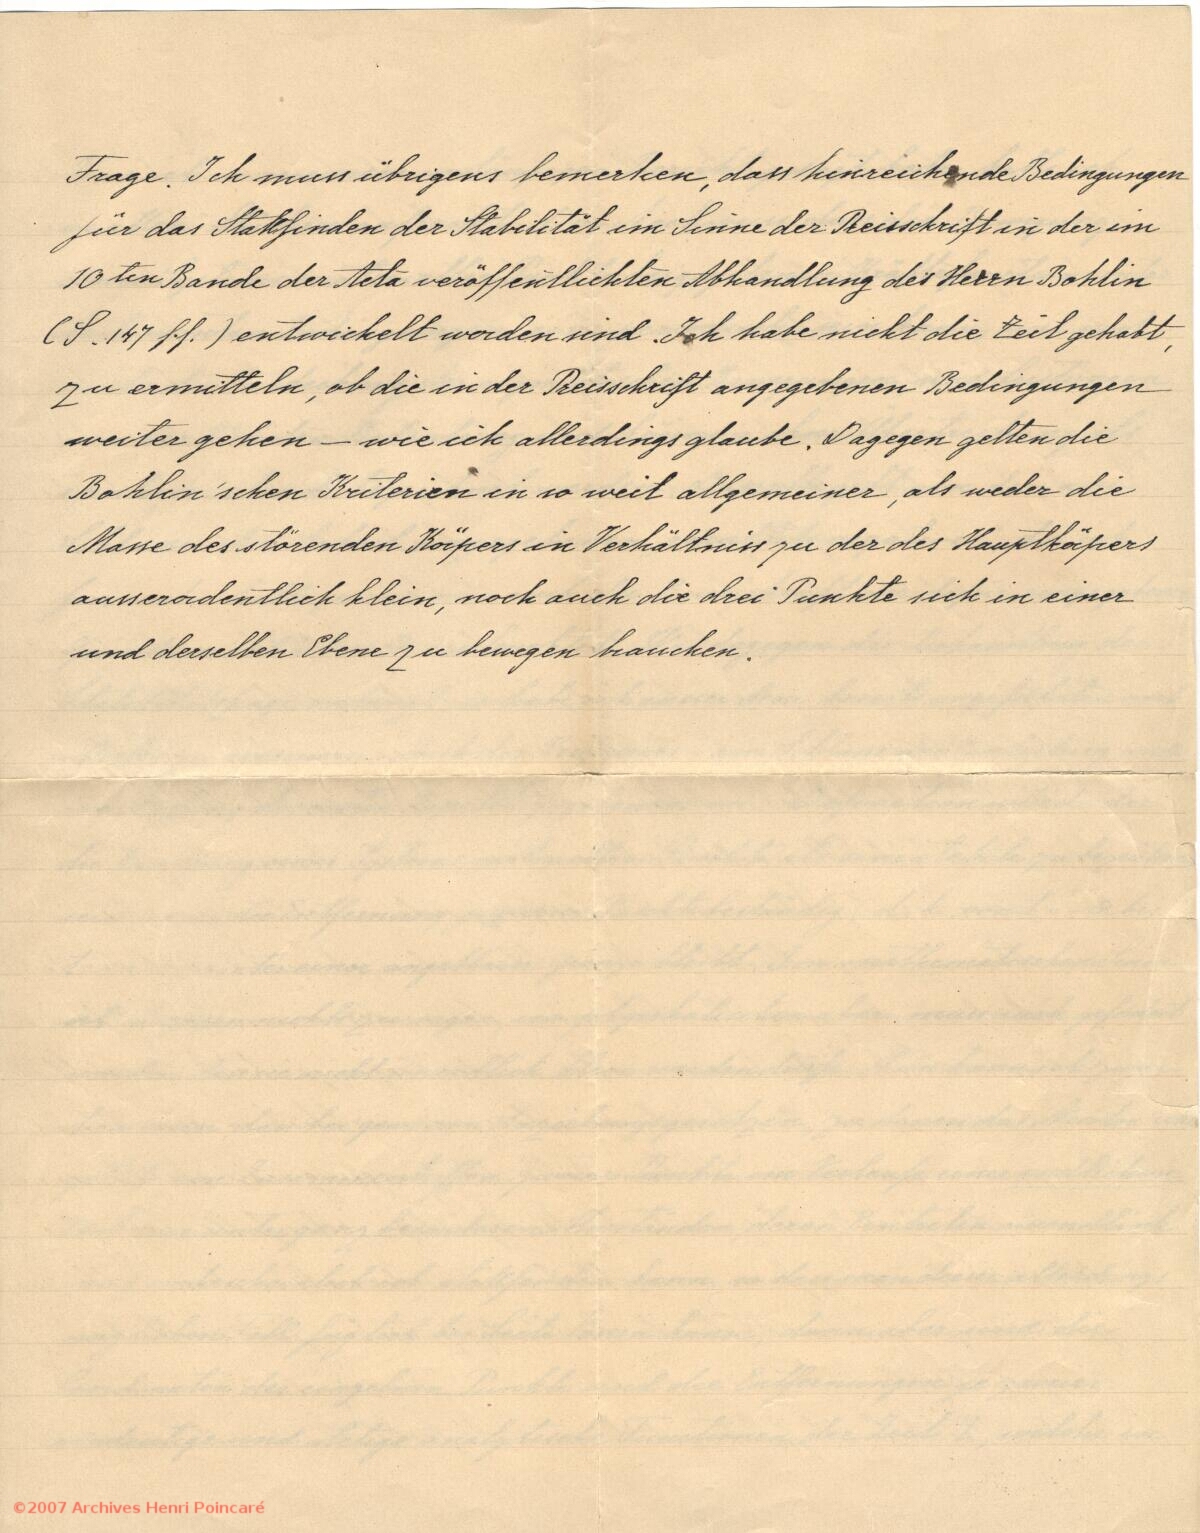 Frage. Ich muss übrigens bemerken, dass hinreichende Bedingungen
für das Stattfinden der Stabilität im Sinne der Preisschrift in der im
10ten Bande der Acta veröffentlichten Abhandlung des Herrn Bohlin
(S. 147 ff.) entwickelt worden sind. Ich habe nicht die Zeit gehabt,
zu ermitteln, ob die in der Preisschrift angegebenen Bedingungen
weiter gehen – wie ich allerdings glaube. Dagegen gelten die
Bohlin'schen Kriterien in so weit allgemeiner, als weder die
Masse des störenden Körpers in Verhältniss zu der des Hauptkörpers
ausserordentlich klein, noch auch die drei Punkte sich in einer
und derselben Ebene zu bewegen brauchen.
©2007 Archives Henri Poincaré